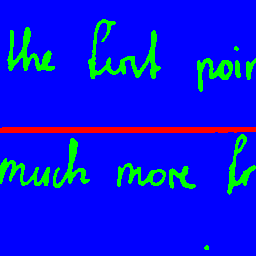 the first poin
much more fr